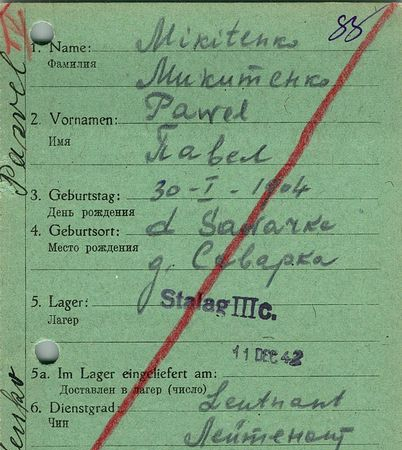 IV
88
1. Name: Mikitenko
Фамилия Микитенко
2. Vornamen: Pawel
Имя Павел
3. Geburtstag: 30-I-1904
День рождения
4. Geburtsort: d
Место рождения д.
5. Lager: Stalag III c.
Лагерь
11 DEC 42
5a. Im Lager eingeliefert am:
Доставлен в лагер (число)
6. Dienstgrad: Leutnant
Чин Лейтенант
Pawel